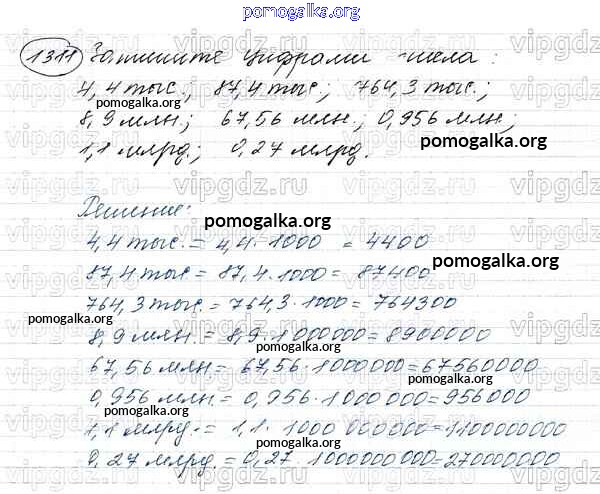 pomogalka.org
1311 Запишите цифрами числа:
4,4 тыс.; 87,4 тыс; 764,3 тыс.;
pomogalka.org
8,9 млн; 67,56 млн; 0,956 млн;
pomogalka.org
1,1 млрд; 0,27 млрд.
vipgdz.ru
Решение:
pomogalka.org
4,4 тыс. = 4,4 · 1000 = 4400
87,4 тыс = 87,4 · 1000 = 87400
pomogalka.org
764,3 тыс. = 764,3 · 1000 = 764300
pomogalka.org
8,9 млн. = 8,9 · 1000000 = 8900000
pomogalka.org
67,56 млн = 67,56 · 1000000 = 67560000
pomogalka.org
0,956 млн. = 0,956 · 1000000 = 956000
pomogalka.org
1,1 млрд. = 1,1 · 1000 000000 = 1100000000
pomogalka.org
0,27 млрд. = 0,27 · 1000000000 = 270000000
pomogalka.org